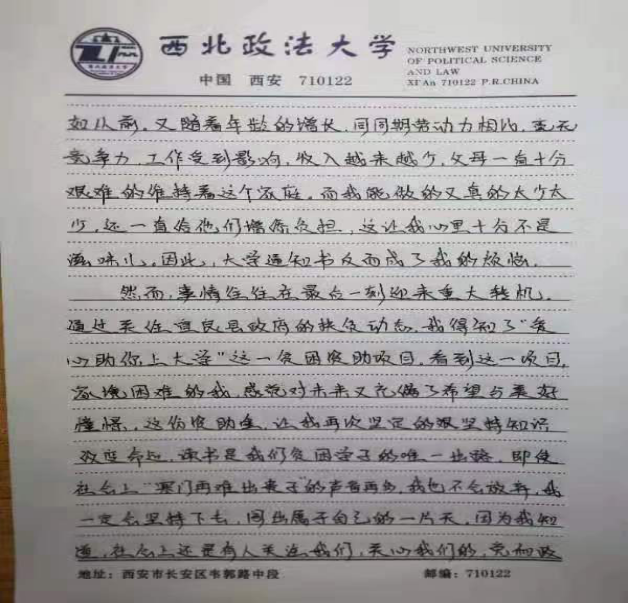 西北政法大学
NORTHWEST UNIVERSITY
OF POLITICAL SCIENCE
AND LAW
中国 西安 710122
XI'An 710122 P.R.CHINA
如从前,又随着年龄的增长,同同期劳动力相比,毫无
竞争力,工作受到影响,收入越来越少,父母一直十分
艰难的维持着这个家庭,而我能做的又真的太少太
少,还一直给他们增添负担,这让我心里十分不是
滋味儿,因此,大学通知书反而成了我的烦恼。
然而,事情往往在最后一刻迎来重大转机。
通过关注宜良县政府的扶贫动态,我得知了“爱
心助你上大学”这一贫困资助项目,看到这一项目,
家境困难的我,感觉对未来又充满了希望与美好
憧憬,这份资助金,让我再次坚定的要坚持知识
改变命运,读书是我们贫困学子的唯一出路,即使
社会上“寒门再难出贵子”的声音再多,我也不会放弃,我
一定会坚持下去,闯出属于自己的一片天,因为我知
道,社会上还是有人关注我们,关心我们的,党和政
地址:西安市长安区韦郭路中段 邮编:710122